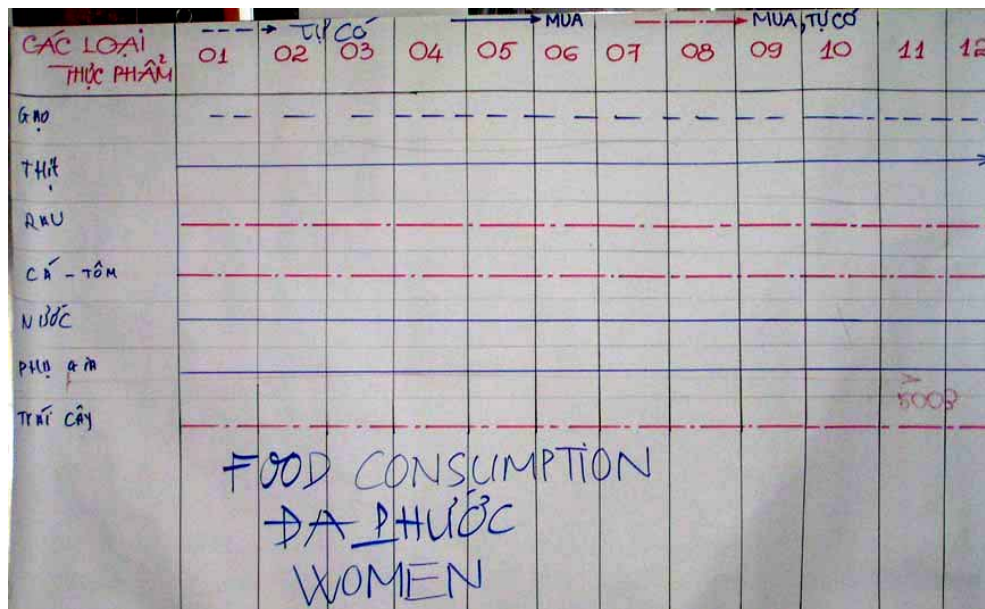 TỰ CÓ MUA MUA, TỰ CÓ
CÁC LOẠI THỰC PHẨM 01 02 03 04 05 06 07 08 09 10 11 12
GẠO
THỊT
RAU
CÁ - TÔM
NƯỚC
PHỤ GIA
TRÁI CÂY
FOOD CONSUMPTION
ĐA PHƯỚC
WOMEN